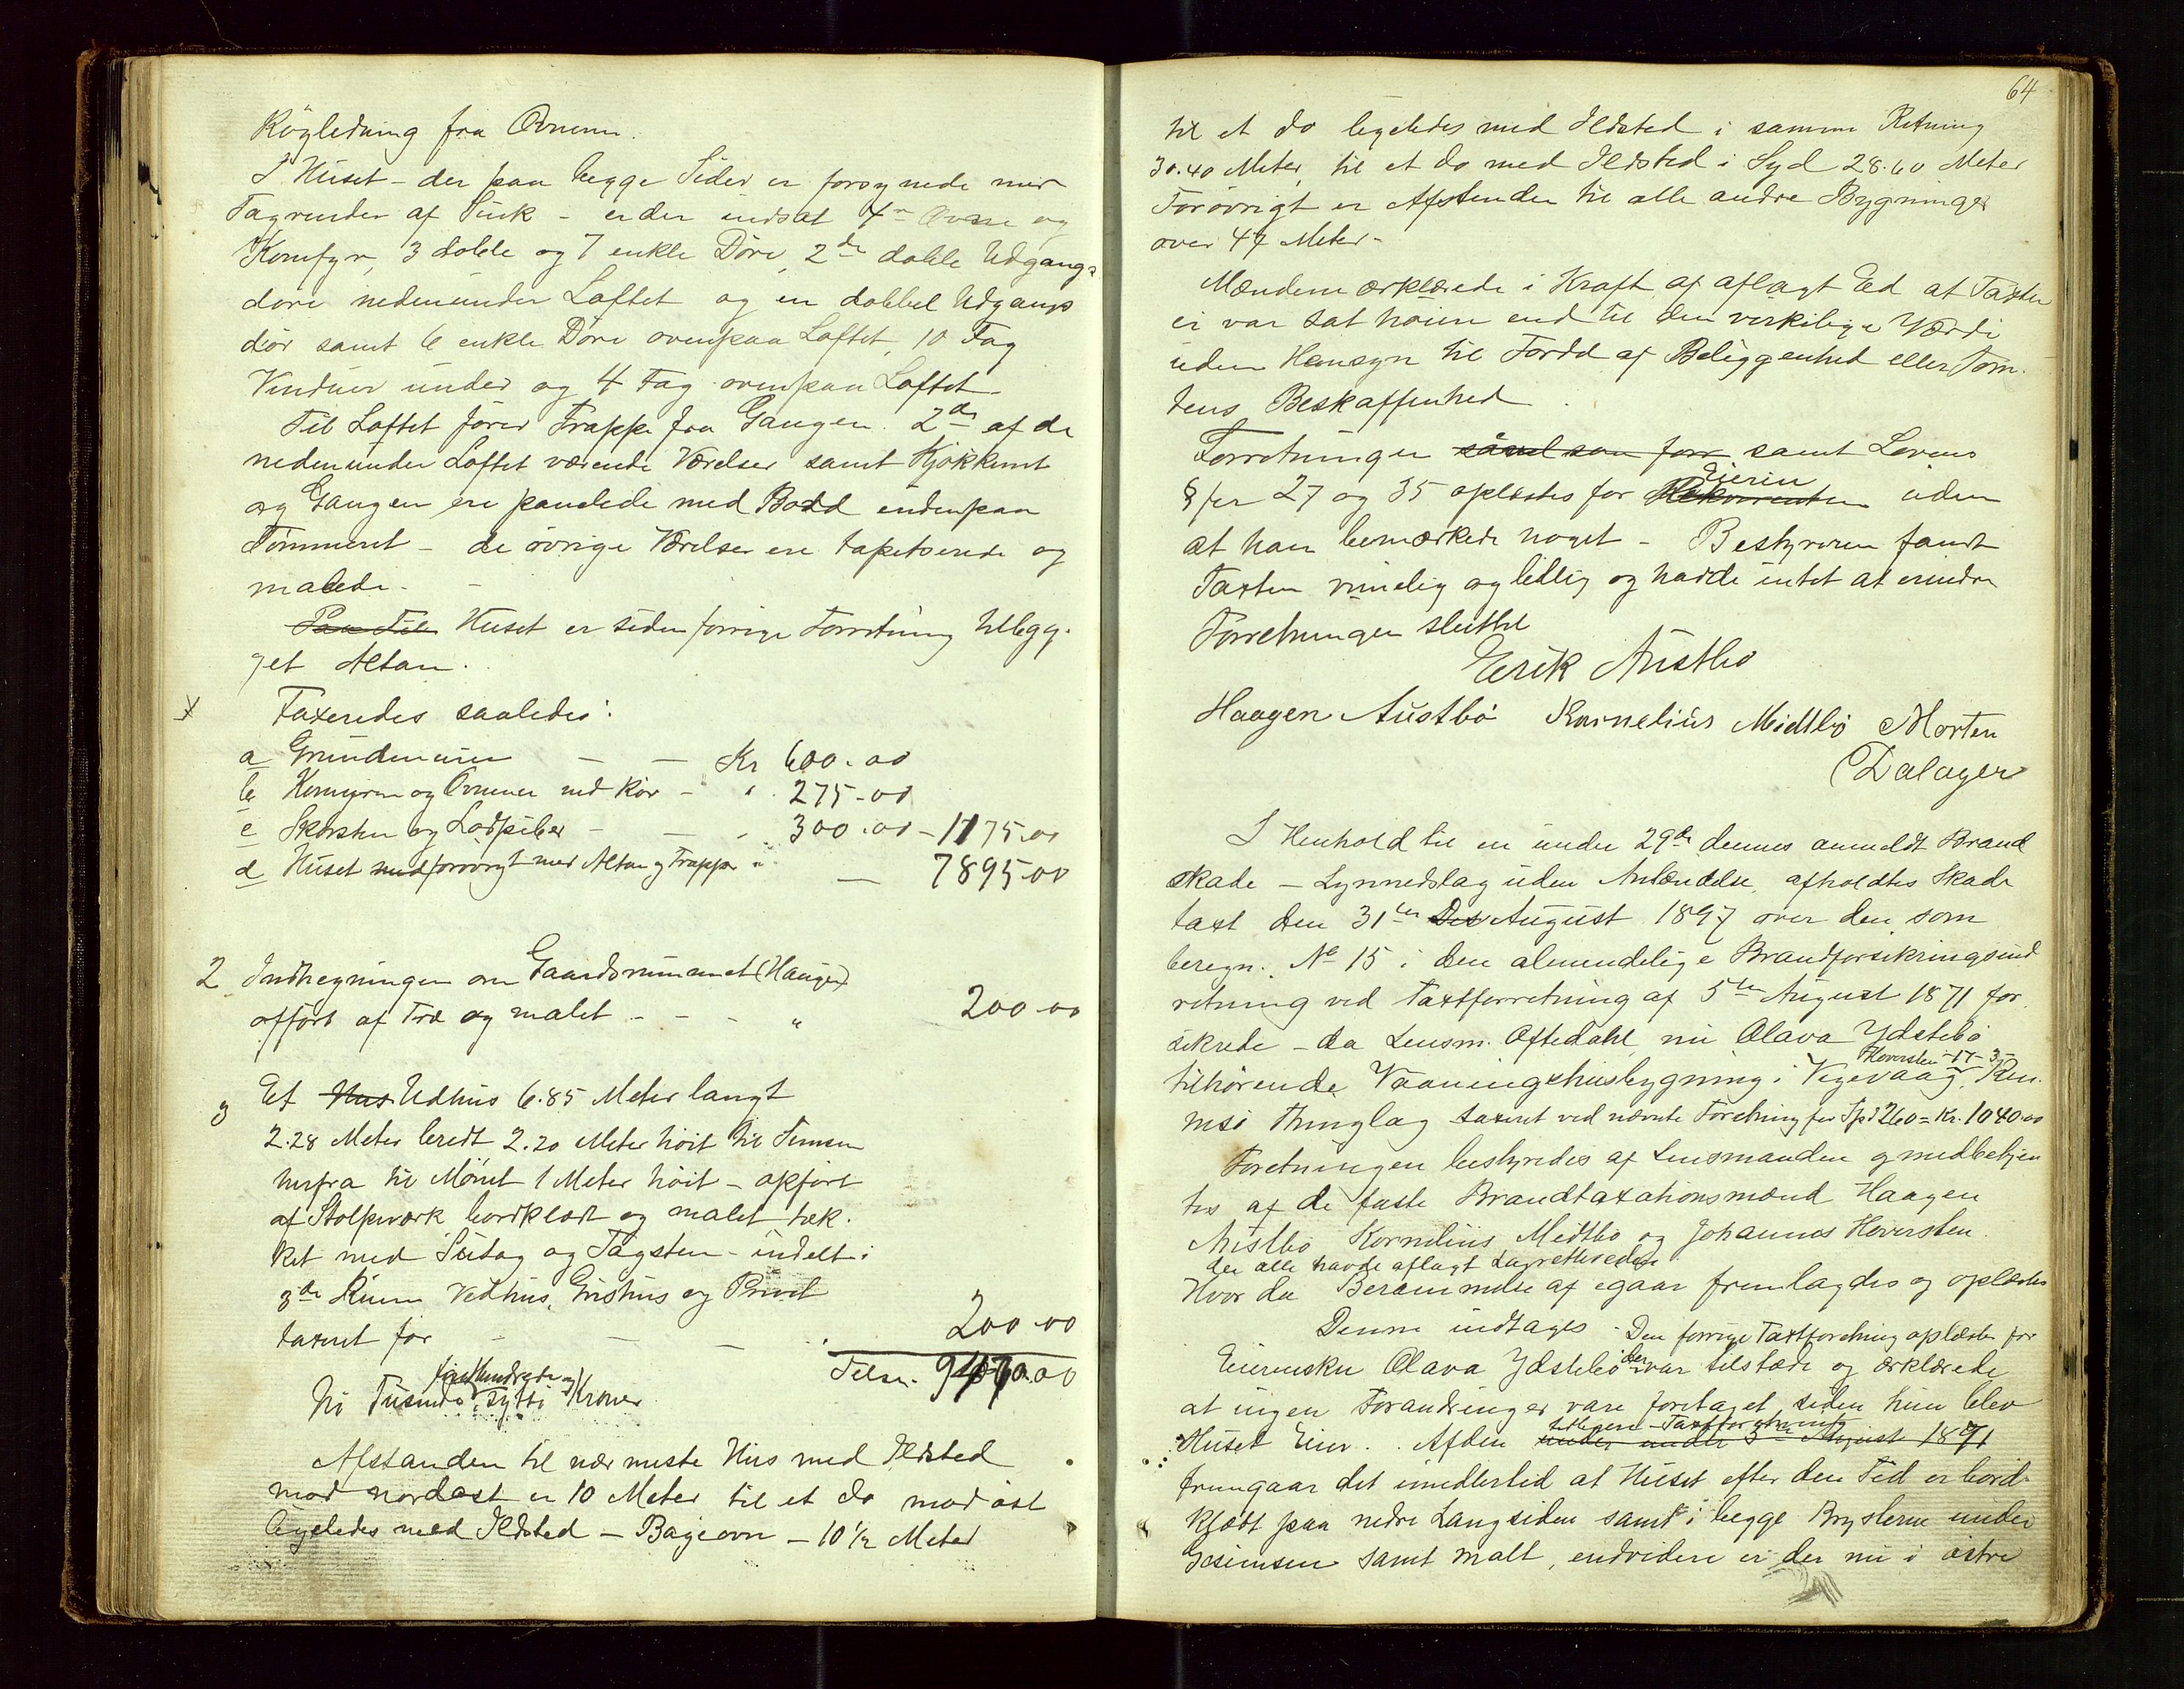 Röyledning fra Ovnenn.
I Huset – der paa begge Sider er forsynede med
Tagrender af Sink – er der indsat 4re Ovne og
Komfyr, 3 doble og 7 enkle Döre, 2de doble Udgangs
döre nedenunder Loftet og en dobbel Udgangs
dör samt 6 enkle Döre ovenpaa Loftet, 10 Fag
Vinduer under og 4 Fag ovenpaa Loftet.
Til Loftet förer Trappe fra Gangen. 2de af de
nedenunder Loftet værende Værelser samt Kjökkenet
og Gangen ere panelede med Bord indenpaa
Tömmeret – de övrige Værelser ere tapetserede og
malede. –
Paa Til Huset er siden forrige Forretning tillegg-
get Altan.
Taxeredes saaledes:
a Grundmuren – – Kr 600.00
b Komfyren og Ovnene med Rör – " 275-00
c Skorsten og Lodpiber – – " 300.00 – 1175.00
d Huset med forövrigt med Altan og Trapper " – 7895-00
2 Indhegningen om Gaardsrummet (Haugen)
opfört af Træ og malet – – – " 200-00
3 Et Hus Udhus 6.85 Meter langt
2.28 Meter bredt 2.20 Meter höit til Simsen
herfra til Mönet 1 Meter höit – opfört
af Stolpeværk bordklædt og malet tæk-
ket med Sutag og Tagsten – indelt i
3de Rum Vedhus, Grishus og Privet
taxeret for – – . 200-00
Tilsm. 9470.00
firehundrede og
Ni Tusinde, sytti Kroner
Afstanden til nærmeste Hus med Ildsted
mod nordost er 10 Meter til et do mod öst
ligeledes med Ildsted – Bageovn – 10 1/2 Meter
64
til et do ligeledes med Ildsted i samme Retning
30.40 Meter, til et do med Ildsted i Syd 28.60 Meter
Forövrigt er Afstanden til alle andre Bygninger
over 47 Meter.
Mændene erklærede i Kraft af aflagt Ed at Taxten
ei var sat höiere end til den verkelige Værdi
uden Hensyn til Fordel af Beliggenhed eller Tom-
tens Beskaffenhed.
Forretningen saavel som forr samt Lovens
Eieren
§fer 27 og 35 oplæstes for Rekvirenten uden
at han bemærkede noget – Bestyreren fandt
Taxten rimelig og billig og havde intet at erindre
Forretningen sluttet
Erik Austbö
Haagen Austbö Kornelius Midtbö Morten
Dalager
I Henhold til en under 29de dennes anmeldt Brand
skade – Lynnedslag uden Antændelse, afholdtes Skade
taxt den 31te Des August 1897 over den som
beregn. No 15 i den almindelige Brandforsikringsind
retning ved Taxtforretning af 5te August 1871 for
sikrede – da Lensm. Oftedahl, nu Olava Ydstebö
Hoversten – 17 – 3 –
tilhörende Vaaningshusbygning i Vigevaag, Ren-
nesö Thinglag taxeret ved nævnte Forretning for Spd 260 = Kr. 1040.00
Forretningen bestyredes af Lensmanden og medbetjen
tes af de faste Brandtaxationsmænd Haagen
Austbö Kornelius Midtbö og Johannes Hoversten.
der alle havde aflagt Lagretteseden
Hvor da Berammelse af igaar fremlagdes og oplæstes
Denne indtages – Den forrige Taxtforretning oplæstes for
der
Eiersken Olava Ydstebö var tilstæde og erklærede
at ingen Forandringer vare foretaget siden hun blev
tidligere Taxtforretning
Huset Eier. Af den under under 5te August 1871
fremgaar det imidlertid at Huset efter den Tid er bord-
klædt paa nedre Langsiden samt i begge Brysterne under
Gesimsen samt malt, endvidere er der nu i östre